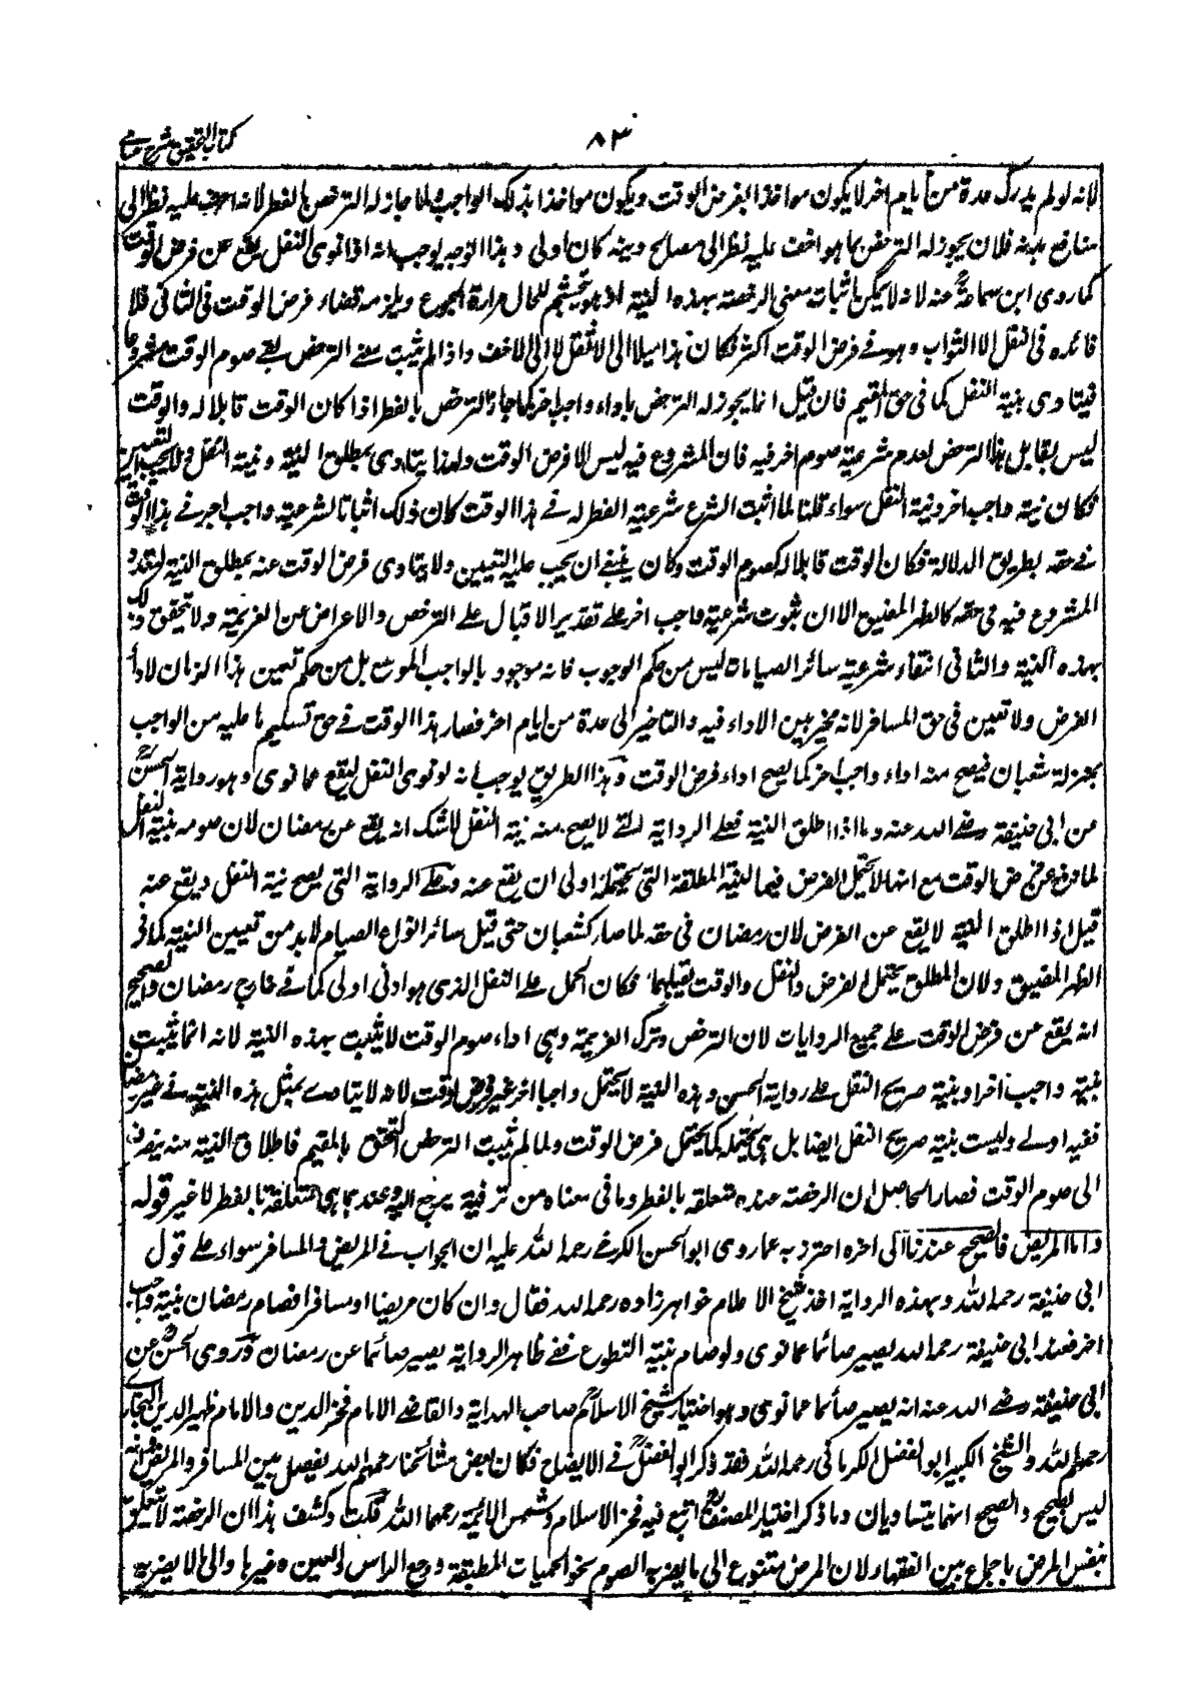 كتاب التحقيق شرح حسامى
٨٣
لانه لو لم يدرك عدة من ايام اخر لا يكون مواخذا بفرض الوقت ويكون مواخذا بذلك الواجب ولما جاز له الترخص بالفطر لانه اخف عليه نظرا الى
منافع بدنه فلان يجوز له الترخص بما هو اخف عليه نظرا الى مصالح دينه كان اولى وهذا الوجه يوجب انه اذا نوى النفل يقع عن فرض الوقت
كما روى ابن سماعة عنه لانه لا يمكن اثبات معنى الرخصة بهذه النية اذ هو تجشم للحال مرارة الجوع ويلزمه قضاء فرض الوقت فى الثانى فلا
فائده فى النفل الا الثواب وهو فى فرض الوقت اكثر فكان هذا ميلا الى الاثقل لا الى الاخف واذا لم يثبت معنى الترخص بقى صوم الوقت مشروعا
فيتادى بنية النفل كما فى حق المقيم فان قيل انما يجوز له الترخص باداء واجب اخر كما جاز الترخص بالفطر اذا كان الوقت قابلا له والوقت
ليس بقابل لهذا الترخص لعدم شرعية صوم اخر فيه فان المشروع فيه ليس الا فرض الوقت ولهذا يتادى بمطلق النية ونية النفل ولا يجب التعيين
فكان نية واجب اخر ونية النفل سواء قلنا لما اثبت الشرع شرعية الفطر له فى هذا الوقت كان ذلك اثباتا لشرعية واجب اخر فى هذا الوقت
فى حقه بطريق الدلالة فكان الوقت قابلا له كصوم الوقت وكان ينبغى ان يجب عليه التعيين ولا يتادى فرض الوقت عنه بمطلق النية لتعدد
المشروع فيه فى حقه كالظهر المضيق الا ان ثبوت شرعية واجب اخر على تقدير الاقبال على الترخص والاعراض عن العزيمة ولا تحقق لذلك
بهذه النية والثانى انتفاء شرعية سائر الصيامات ليس من حكم الوجوب فانه موجود بالواجب الموسع بل من حكم تعين هذا الزمان لاداء
الفرض ولا تعين فى حق المسافر لانه مخير بين الاداء فيه والتاخير الى عدة من ايام اخر فصار هذا الوقت فى حق تسليم ما عليه من الواجب
بمنزلة شعبان فيصح منه اداء واجب اخر كما يصح اداء فرض الوقت وهذا الطريق يوجب انه لو نوى النفل يقع عما نوى وهو رواية الحسن
عن ابى حنيفة رضى الله عنه واما اذا اطلق النية فعلى الرواية التى لا يصح منه نية النفل لا شك انه يقع عن رمضان لان صومه بنية النفل
لما وقع عن فرض الوقت مع انها لا تحتمل الفرض فبالنية المطلقة التى تحتمله اولى ان يقع عنه وعلى الرواية التى يصح نية النفل ويقع عنه
قيل اذا اطلق النية لا يقع عن الفرض لان رمضان فى حقه لما صار كشعبان حتى قبل سائر انواع الصيام لا بد من تعيين النية كما فى
الظهر المضيق ولان المطلق يحتمل الفرض والنفل والوقت يقبلهما فكان الحمل على النفل الذى هو ادنى اولى كما فى خارج رمضان والصحيح
انه يقع عن فرض الوقت على جميع الروايات لان الترخص وترك العزيمة وهى اداء صوم الوقت لا يثبت بهذه النية لانه انما يثبت
بنية واجب اخر او بنية صريح النفل على رواية الحسن وهذه النية لا تحتمل واجبا اخر غير فرض الوقت لانه لا يتادى بمثل هذه النية فى غير رمضان
ففيه اولى وليست بنية صريح النفل ايضا بل هى تحتمله كما يحتمل فرض الوقت ولما لم يثبت الترخص التحق بالمقيم فاطلاق النية منه ينصرف
الى صوم الوقت فصار الحاصل ان الرخصة عنده متعلقة بالفطر وما فى معناه من ترفية يرجع اليه وعندهما هى متعلقة بالفطر لا غير قوله
واما المريض فالصحيح عندنا الى اخره احترز به عما روى ابو الحسن الكرخى رحمه الله عليه ان الجواب فى المريض والمسافر سواء على قول
ابى حنيفة رحمه الله وبهذه الرواية اخذ شيخ الاسلام خواهر زاده رحمه الله فقال وان كان مريضا او مسافرا فصام رمضان بنية واجب
اخر فعند ابى حنيفة رحمه الله يصير صائما عما نوى ولو صام بنية التطوع ففى ظاهر الرواية يصير صائما عن رمضان وروى الحسن عن
ابى حنيفة رضى الله عنه انه يصير صائما عما نوى وهو اختيار شيخ الاسلام صاحب الهداية والقاضى الامام فخر الدين والامام ظهير الدين البخارى
رحمهم الله والشيخ الكبير ابو الفضل الكرمانى رحمه الله فقد ذكر ابو الفضل فى الايضاح فكان بعض مشائخنا رحمهم الله يفصل بين المسافر والمريض وانه
ليس بصحيح والصحيح انهما يتساويان وما ذكر اختيار المصنف اتبع فيه فخر الاسلام وشمس الائمة رحمهما الله قلت وكشف هذا ان الرخصة لا تتعلق
بنفس المرض باجماع بين الفقهاء ولان المرض متنوع الى ما يضر به الصوم نحو الحميات المطبقة ووجع الراس والعين وغيرها والى ما لا يضر به